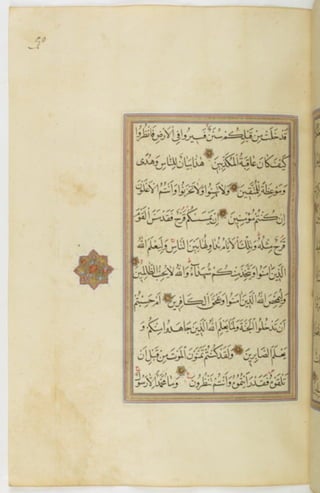 قَدْ خَلَتْ مِنْ قَبْلِكُمْ سُنَنٌ فَسِيرُوا فِي الْأَرْضِ فَانْظُرُوا
كَيْفَ كَانَ عَاقِبَةُ الْمُكَذِّبِينَ هَذَا بَيَانٌ لِلنَّاسِ وَهُدًى
وَمَوْعِظَةٌ لِلْمُتَّقِينَ وَلَا تَهِنُوا وَلَا تَحْزَنُوا وَأَنْتُمُ الْأَعْلَوْنَ
إِنْ كُنْتُمْ مُؤْمِنِينَ إِنْ يَمْسَسْكُمْ قَرْحٌ فَقَدْ مَسَّ الْقَوْمَ
قَرْحٌ مِثْلُهُ وَتِلْكَ الْأَيَّامُ نُدَاوِلُهَا بَيْنَ النَّاسِ وَلِيَعْلَمَ اللَّهُ
الَّذِينَ آمَنُوا وَيَتَّخِذَ مِنْكُمْ شُهَدَاءَ وَاللَّهُ لَا يُحِبُّ الظَّالِمِينَ
وَلِيُمَحِّصَ اللَّهُ الَّذِينَ آمَنُوا وَيَمْحَقَ الْكَافِرِينَ أَمْ حَسِبْتُمْ
أَنْ تَدْخُلُوا الْجَنَّةَ وَلَمَّا يَعْلَمِ اللَّهُ الَّذِينَ جَاهَدُوا مِنْكُمْ وَ
يَعْلَمَ الصَّابِرِينَ وَلَقَدْ كُنْتُمْ تَمَنَّوْنَ الْمَوْتَ مِنْ قَبْلِ أَنْ
تَلْقَوْهُ فَقَدْ رَأَيْتُمُوهُ وَأَنْتُمْ تَنْظُرُونَ وَمَا مُحَمَّدٌ إِلَّا رَسُولٌ